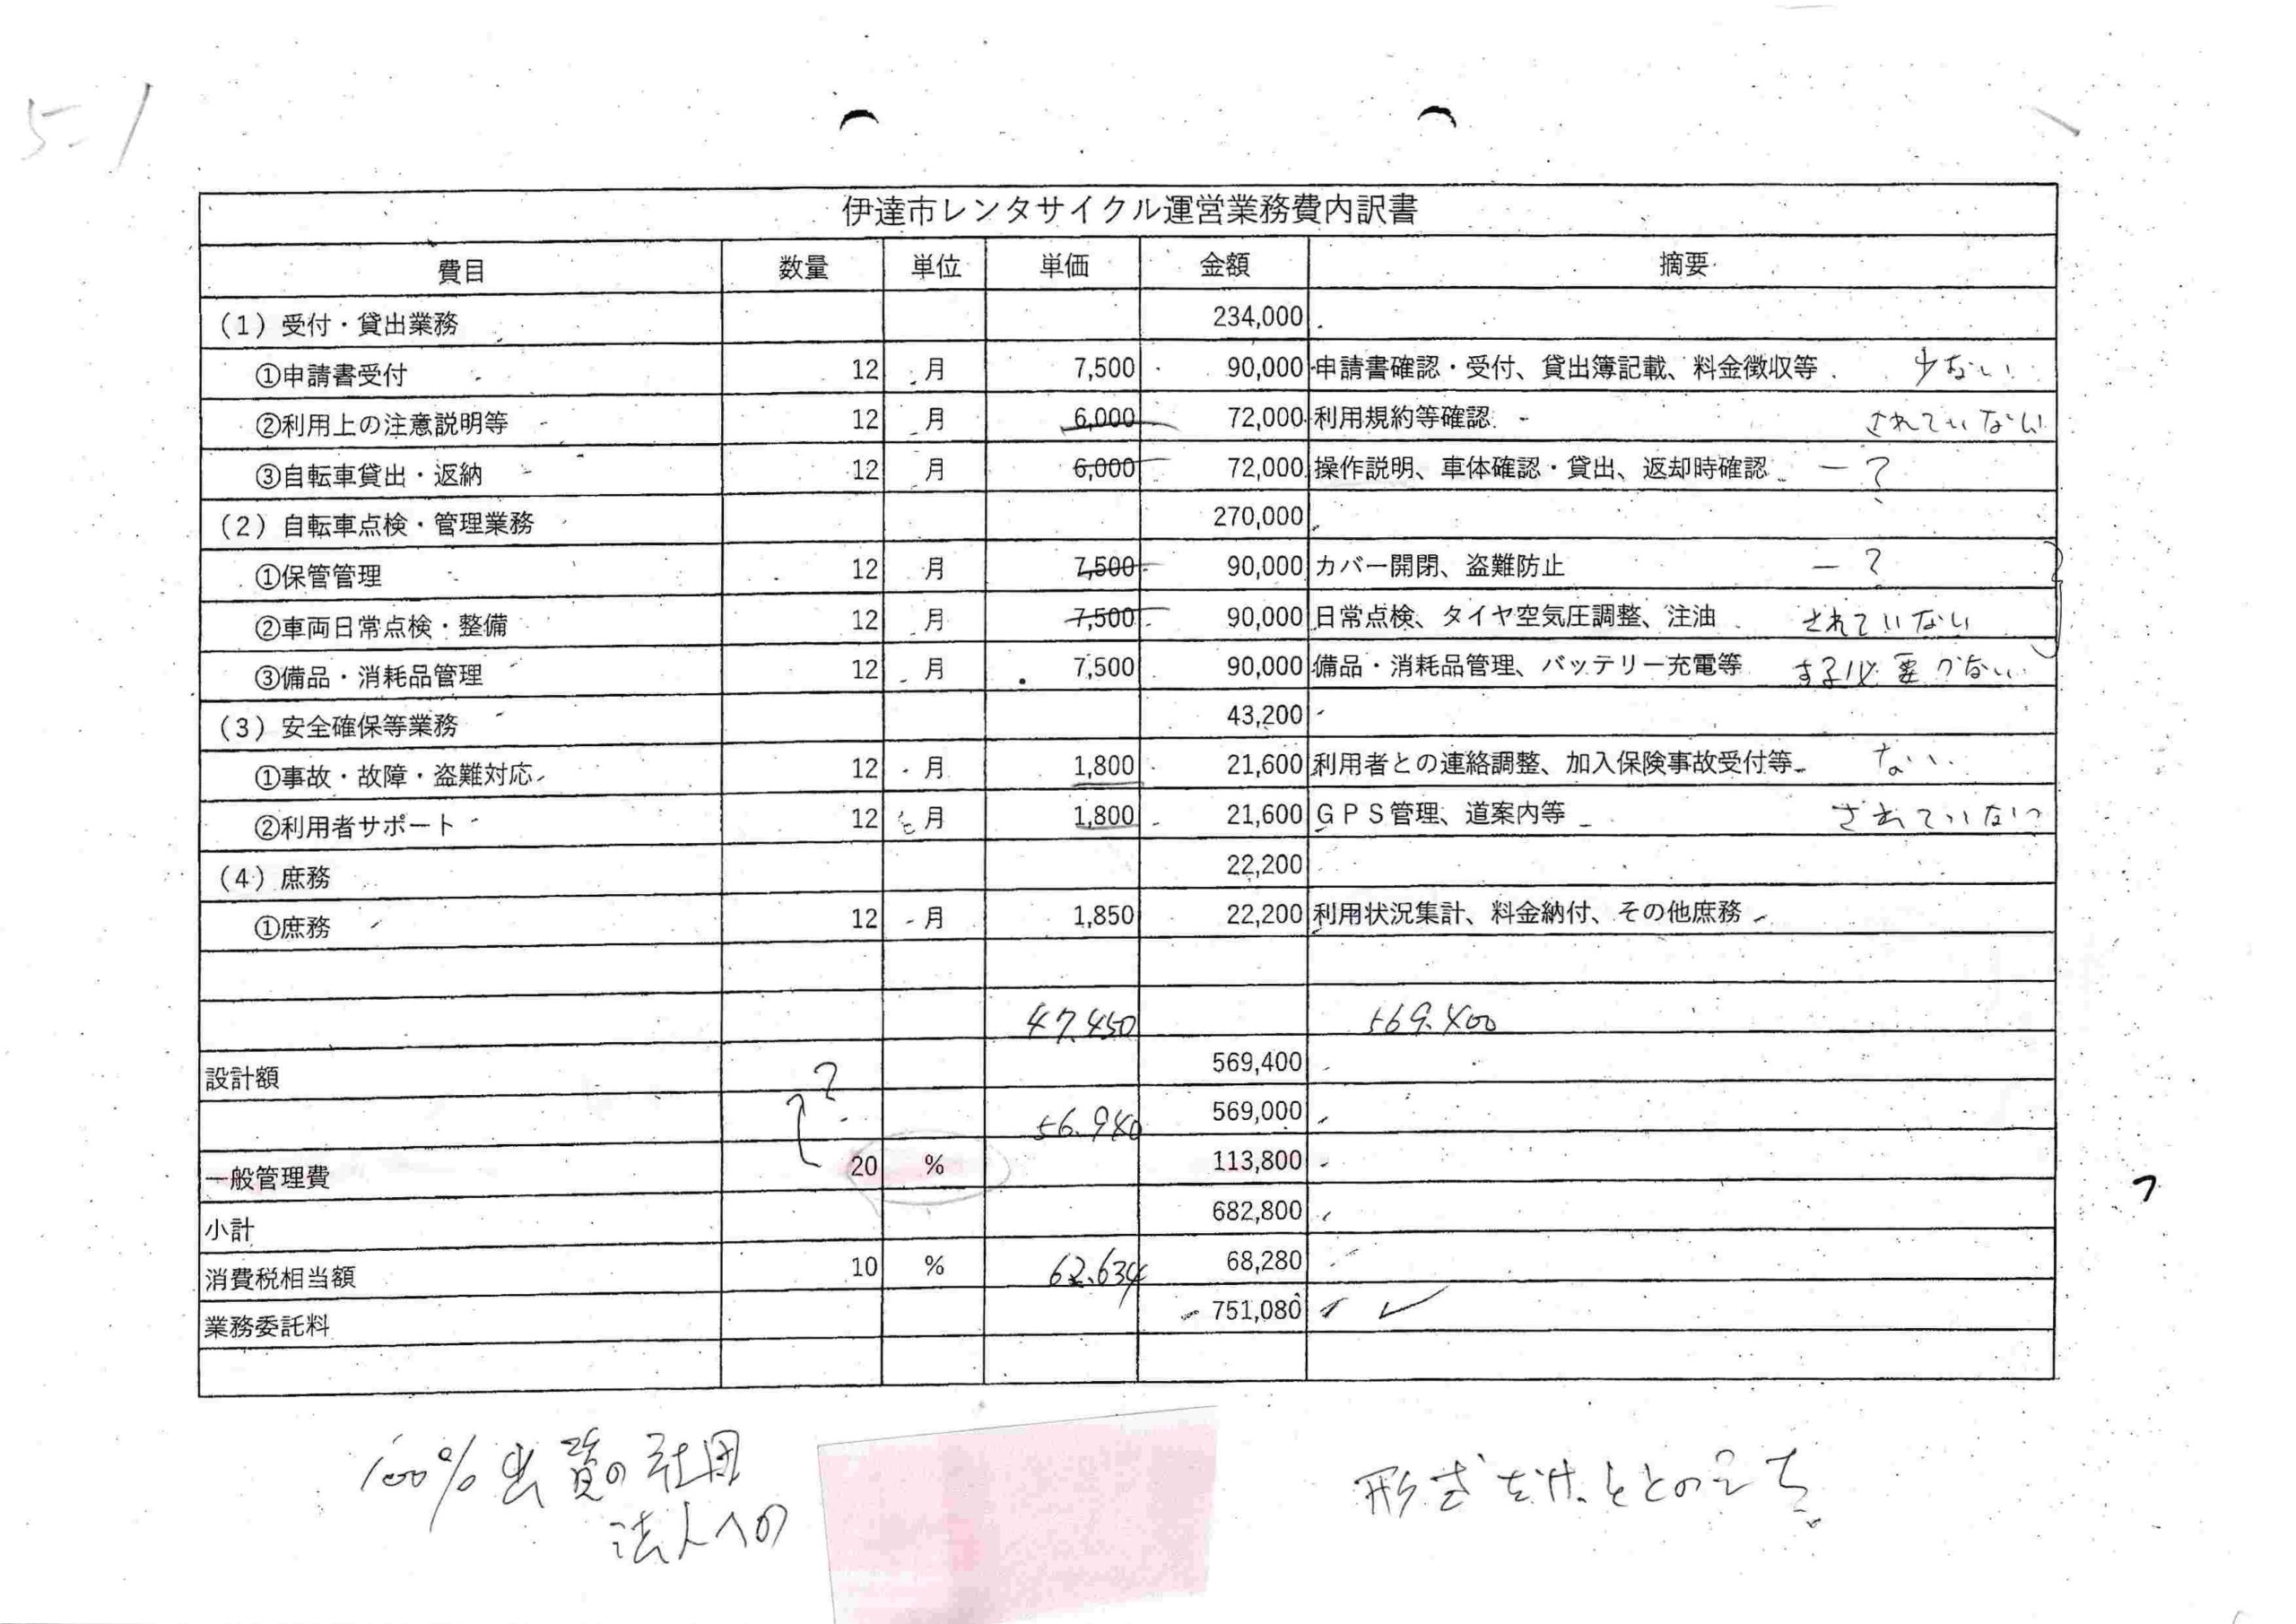 5-1
伊達市レンタサイクル運営業務費内訳書
費目 数量 単位 単価 金額 摘要
(1)受付・貸出業務 234,000
①申請書受付 12 月 7,500 90,000 申請書確認・受付、貸出簿記載、料金徴収等 少ない
②利用上の注意説明等 12 月 6,000 72,000 利用規約等確認 されていない
③自転車貸出・返納 12 月 6,000 72,000 操作説明、車体確認・貸出、返却時確認 ー?
(2)自転車点検・管理業務 270,000
①保管管理 12 月 7,500 90,000 カバー開閉、盗難防止 ー?
②車両日常点検・整備 12 月 7,500 90,000 日常点検、タイヤ空気圧調整、注油 されていない
③備品・消耗品管理 12 月 7,500 90,000 備品・消耗品管理、バッテリー充電等 する必要がない
(3)安全確保等業務 43,200
①事故・故障・盗難対応 12 月 1,800 21,600 利用者との連絡調整、加入保険事故受付等 ない
②利用者サポート 12 月 1,800 21,600 GPS管理、道案内等 されていない
(4)庶務 22,200
①庶務 12 月 1,850 22,200 利用状況集計、料金納付、その他庶務
47,450 569,400
設計額 ? 569,400
56,940 569,000
一般管理費 20 % 113,800
小計 682,800
消費税相当額 10 % 62,634 68,280
業務委託料 751,080
100%出資の社団
法人への
形式だけ、ととのえて